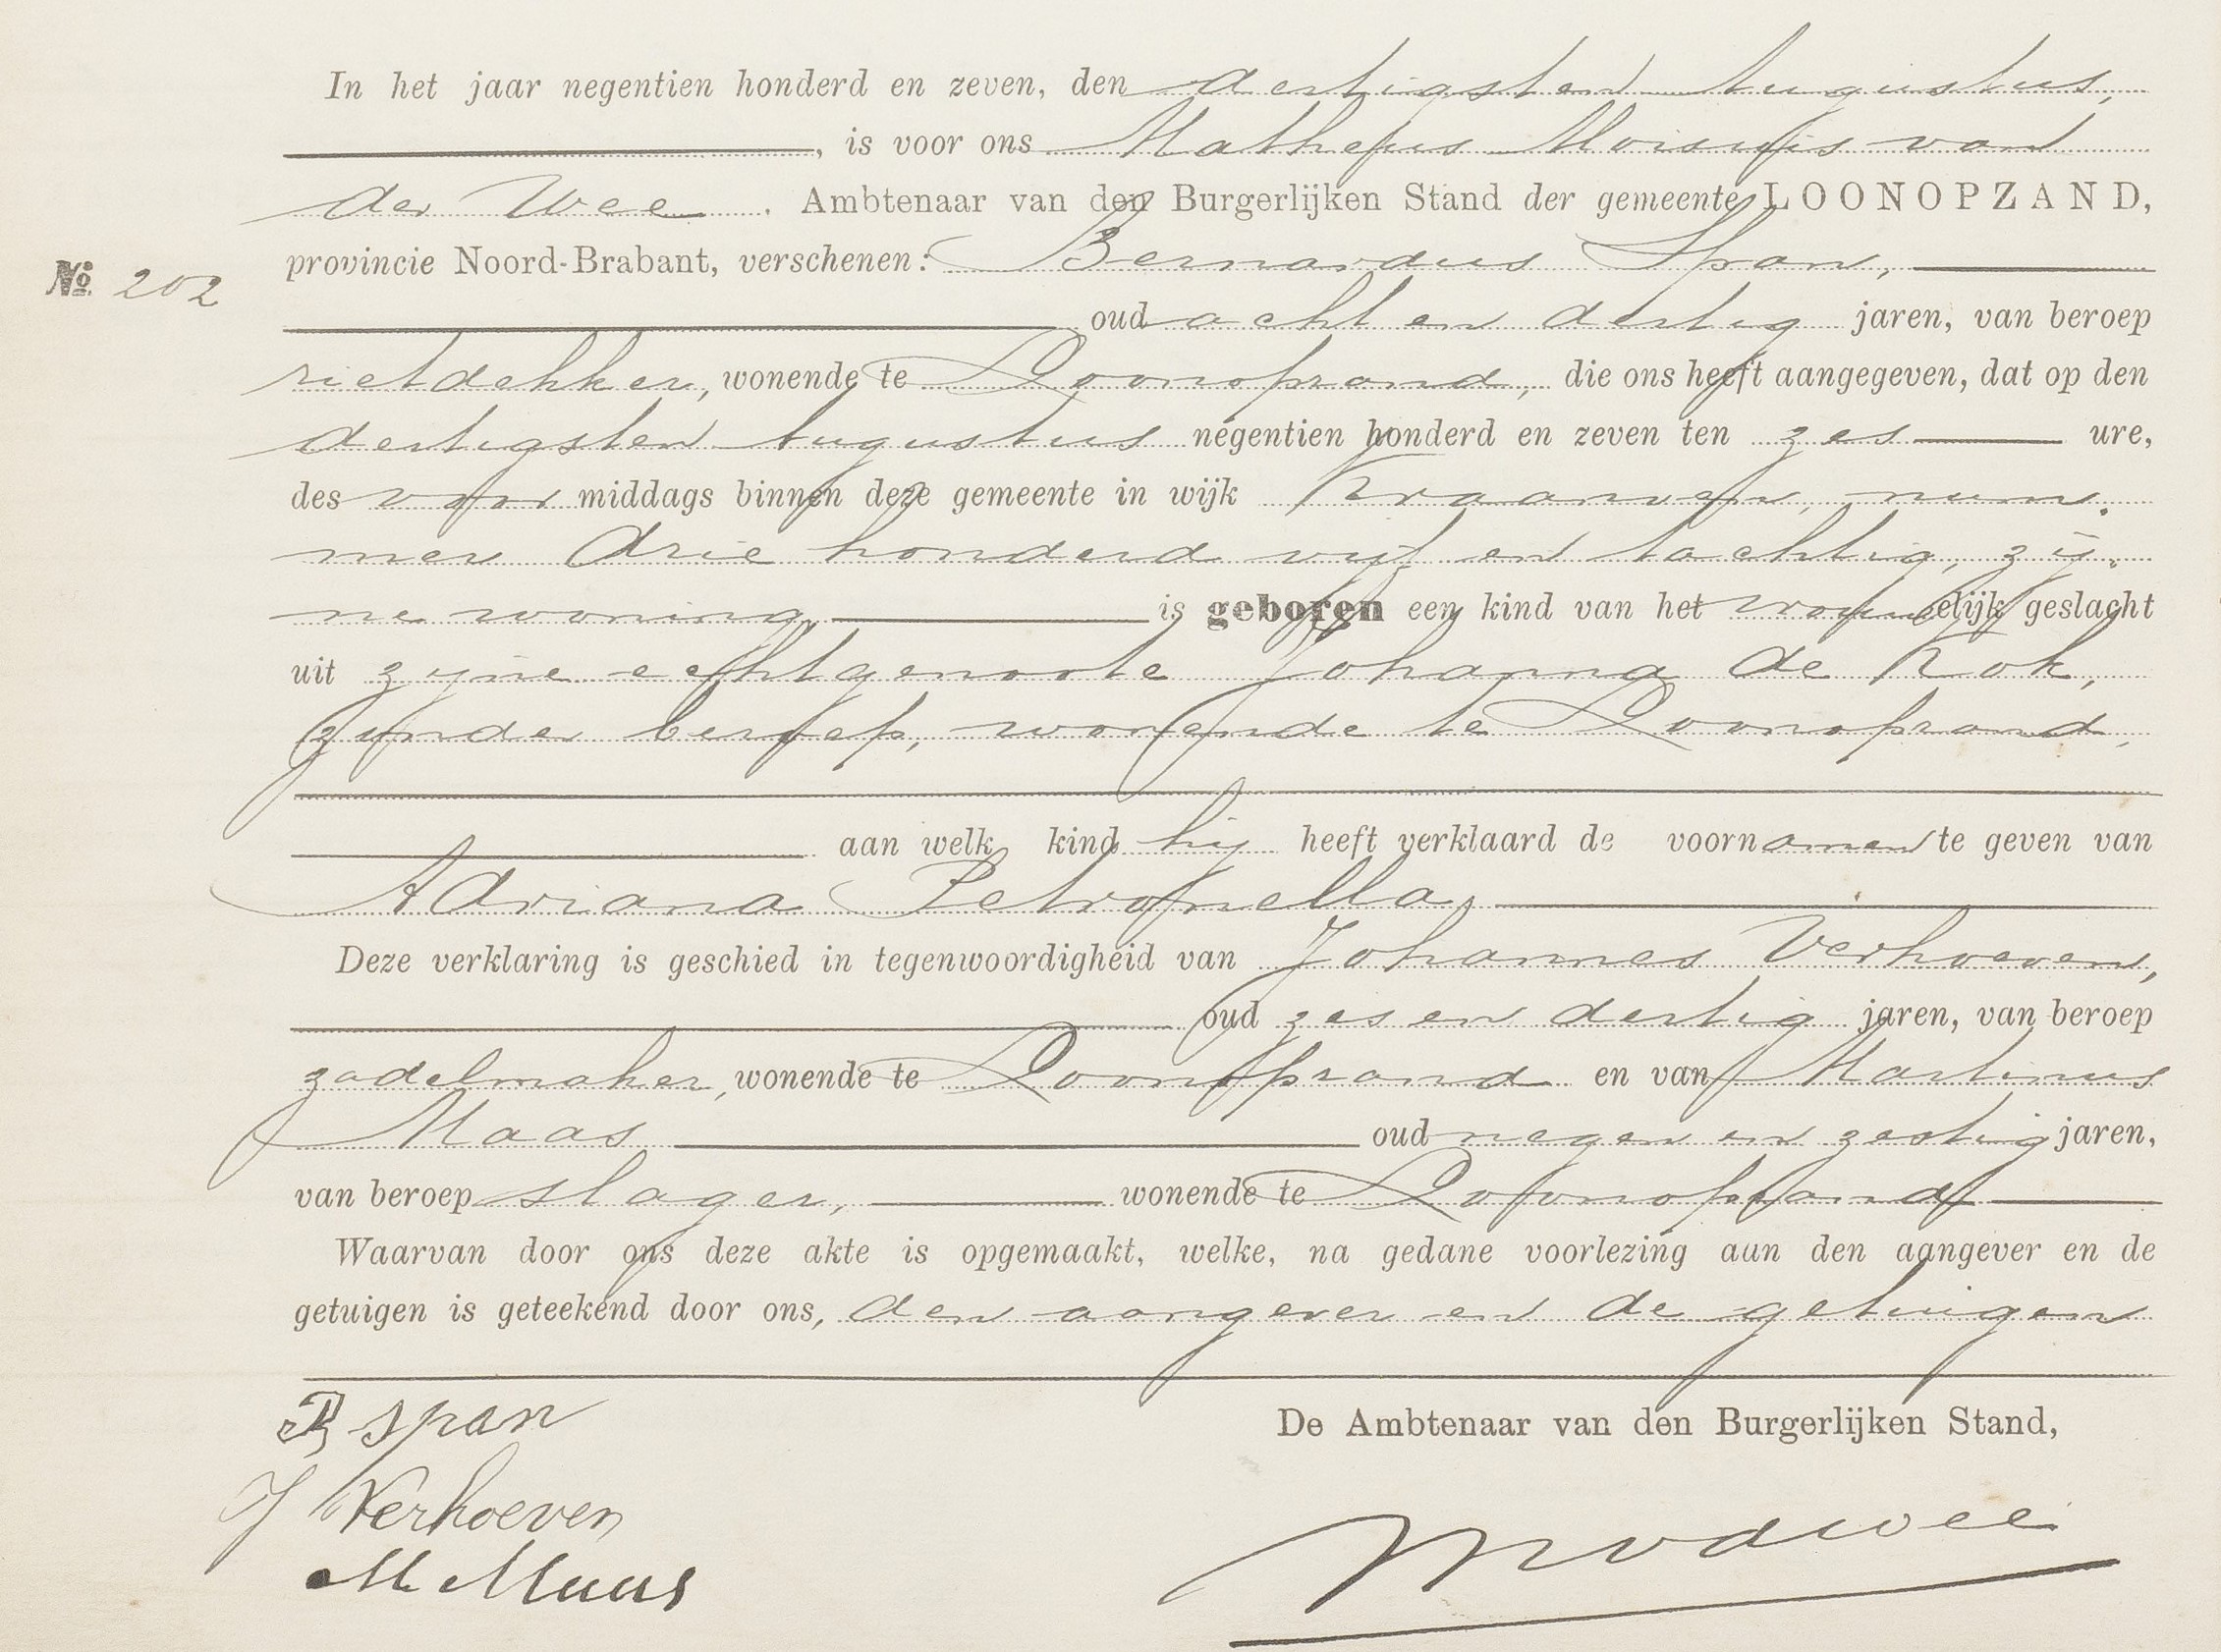 In het jaar negentien honderd en zeven, den dertigsten Augustus,
, is voor ons Matheus van
der Wee . Ambtenaar van den Burgerlijken Stand der gemeente LOONOPZAND,
provincie Noord-Brabant, verschenen: Bernardus Span,
No. 202
oud acht en dertig jaren, van beroep
rietdekker, wonende te Loonopzand, die ons heeft aangegeven, dat op den
dertigsten Augustus negentien honderd en zeven ten zes ure,
des voor middags binnen deze gemeente in wijk Kraanven, num-
mer drie honderd vijf en tachtig, zij-
ne woning is geboren een kind van het vrouwelijk geslacht
uit zijne echtgenoote Johanna de Kok,
zonder beroep, wonende te Loonopzand,
aan welk kind hij heeft verklaard de voornamen te geven van
Adriana Petronella,
Deze verklaring is geschied in tegenwoordigheid van Johannes Verhoeven,
oud zes en dertig jaren, van beroep
zadelmaker, wonende te Loonopzand en van Martinus
Maas oud negen en zestig jaren,
van beroep slager, wonende te Loonopzand
Waarvan door ons deze akte is opgemaakt, welke, na gedane voorlezing aan den aangever en de
getuigen is geteekend door ons, den aangever en de getuigen
B span
De Ambtenaar van den Burgerlijken Stand,
J Verhoeven
M Maas
Mvdwee